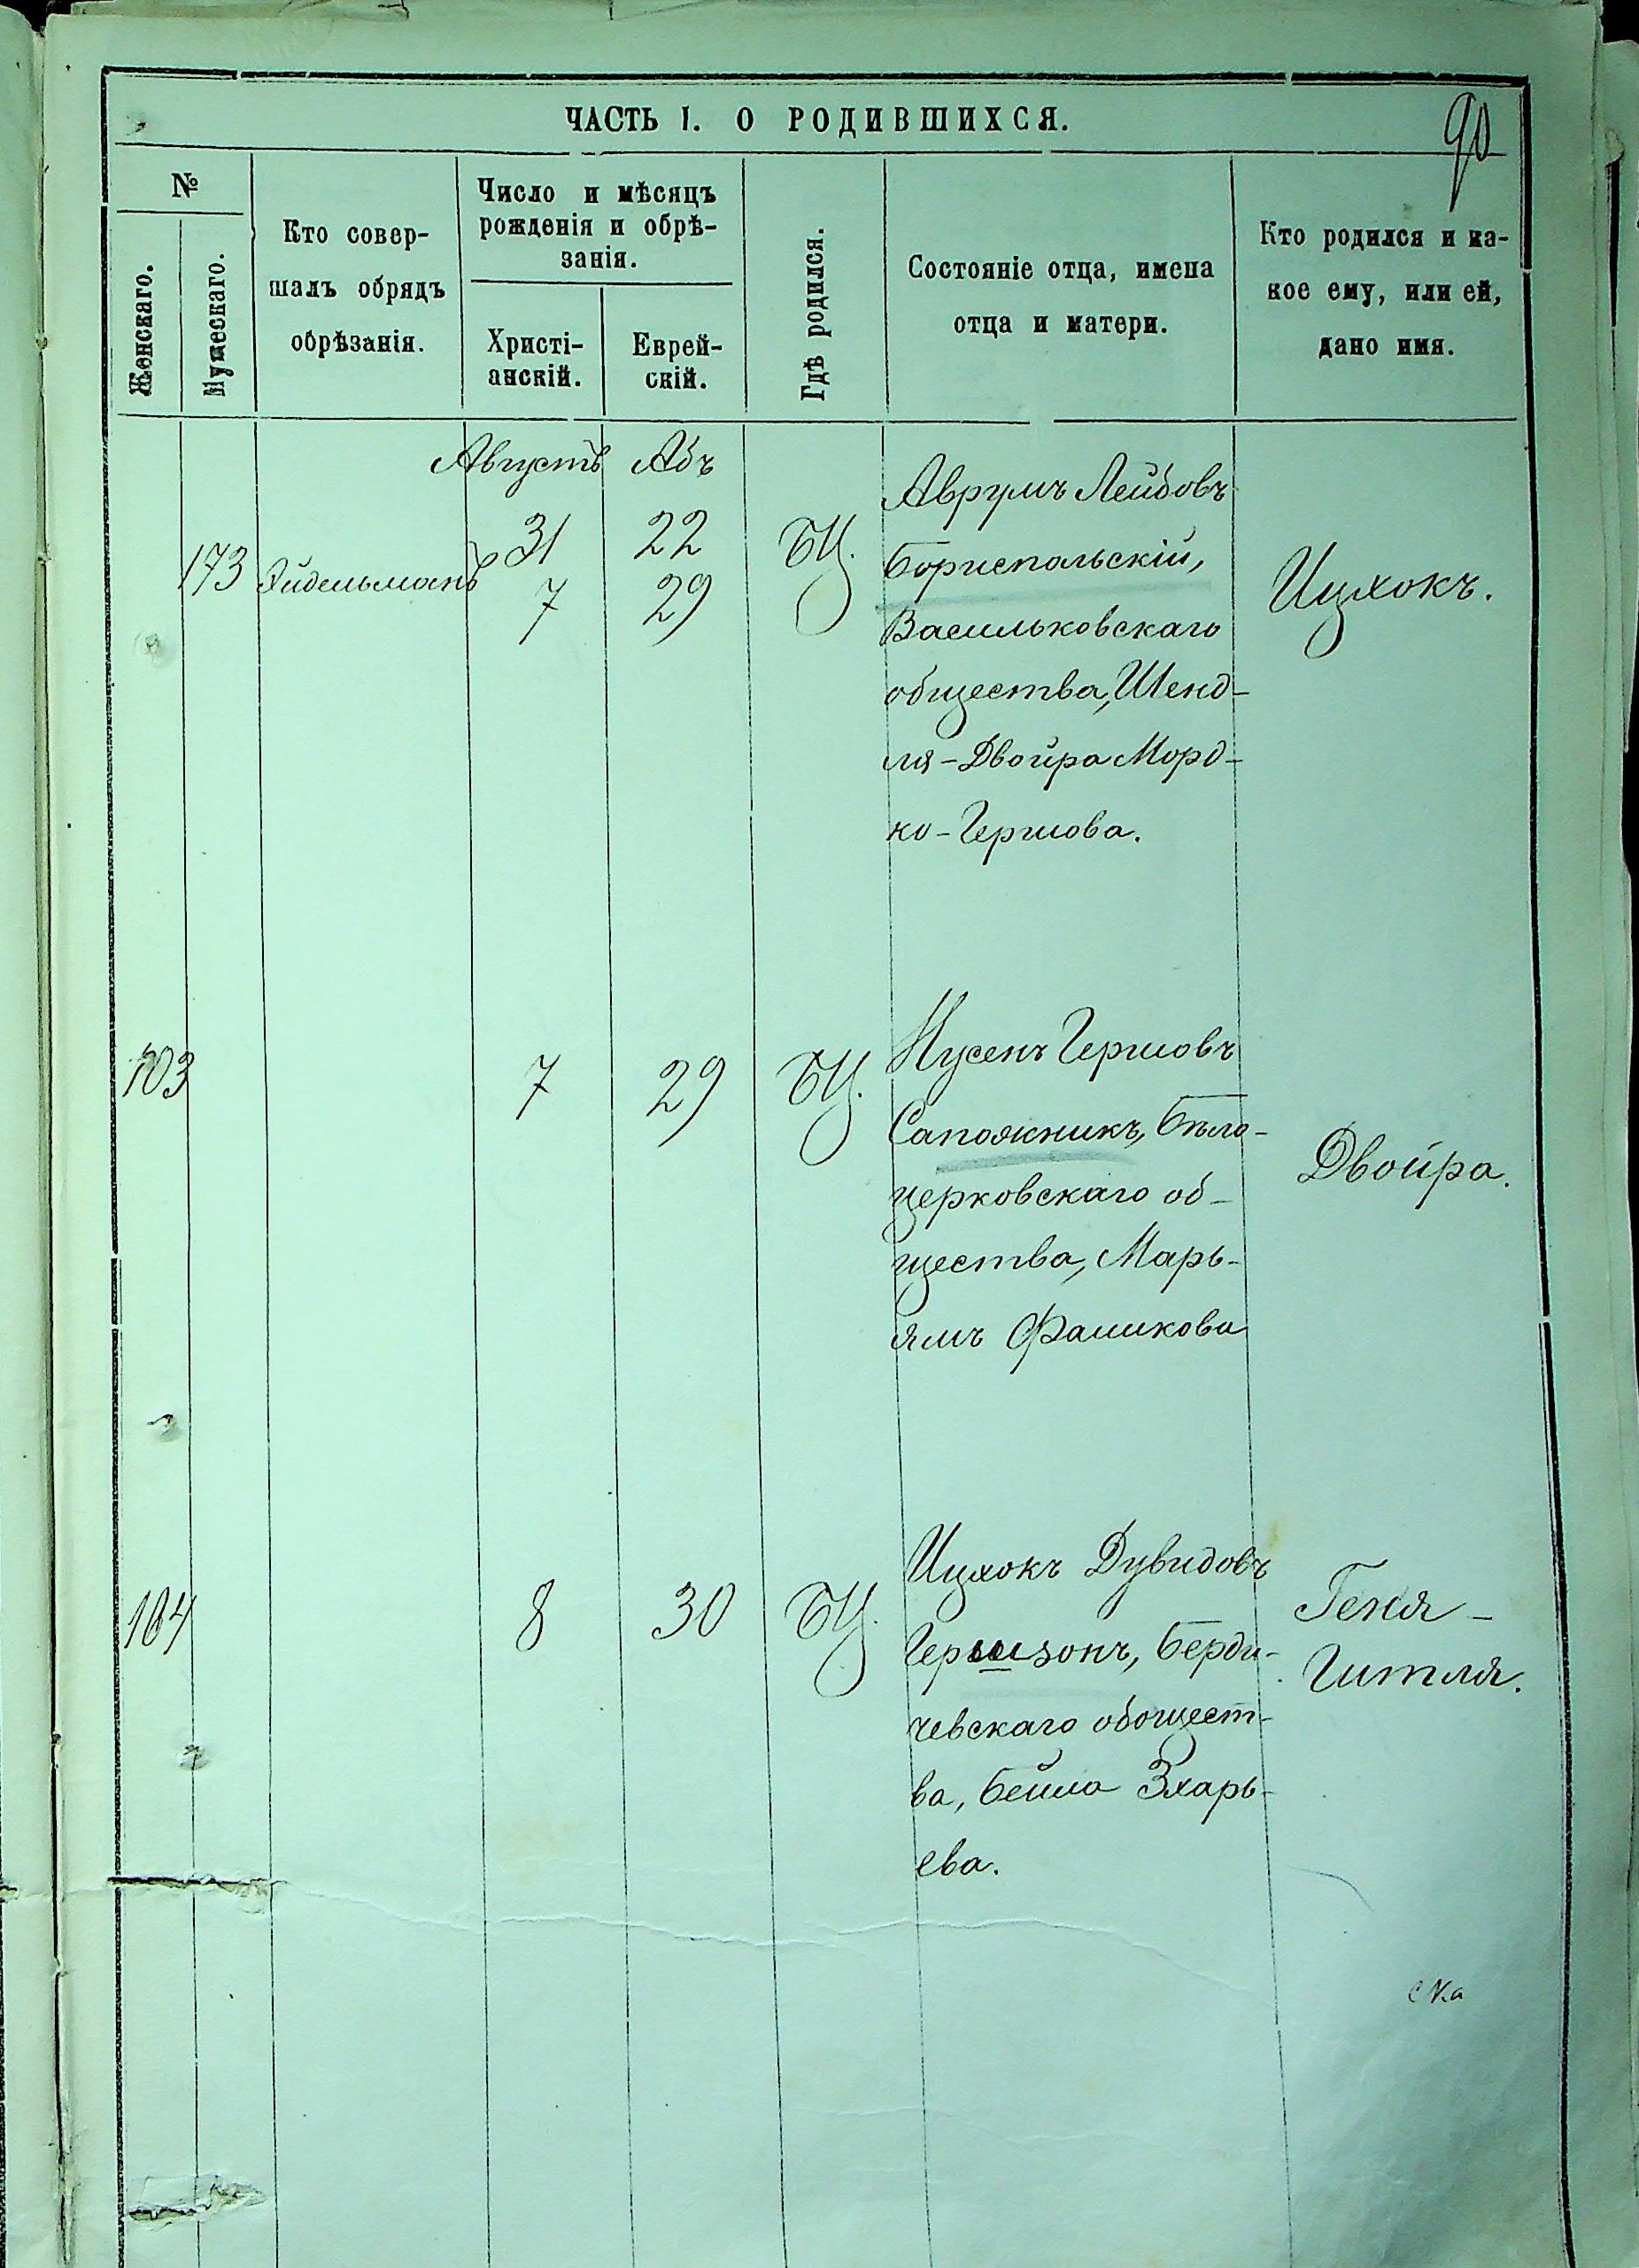 ЧАСТЬ I. О РОДИВШИХСЯ.
90
№
Женскаго.
Мужескаго.
Кто совер-
шалъ обрядъ
обрѣзанія.
Число и мѣсяцъ
рожденія и обрѣ-
занія.
Христі-
анскій.
Еврей-
скій.
Гдѣ родился.
Состояніе отца, имена
отца и матери.
Кто родился и ка-
кое ему, или ей,
дано имя.
Августъ Абъ
173 Эйдельманъ
31 22
7 29
БЦ.
Аврумъ Лейбовъ
Бориспольскій,
Васильковскаго
общества, Шенд-
ля-Двойра Морд-
ко-Гершова.
Ицхокъ.
103 7 29 БЦ.
Нусенъ Гершовъ
Сапожникъ, Бѣло-
церковскаго об-
щества, Марь-
ямъ Фашикова
Двойра.
104 8 30 БЦ.
Ицхокъ Дувидовъ
Гершзонъ, Берди-
чевскаго общест-
ва, Бейла Зхарь-
ева.
Геня-
Гитля.